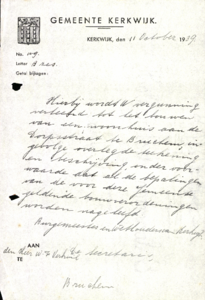 GEMEENTE KERKWIJK.
KERKWIJK, den 11 October 1939
No.
Letter
Getal bijlagen:
Hierby wordt U vergunning
verleend tot het bouwen
van een woonhuis aan de
Dorpsstraat te Bruchem, in-
gevolge overlegde teekening
en beschrijving onder voor-
waarde dat al de bepalingen
de voor deze gemeente
geldende bouwverordeningen
worden nageleefd
Burgemeester en Wethouders van Kerkwijk
AAN
den Heer
TE
Bruchem